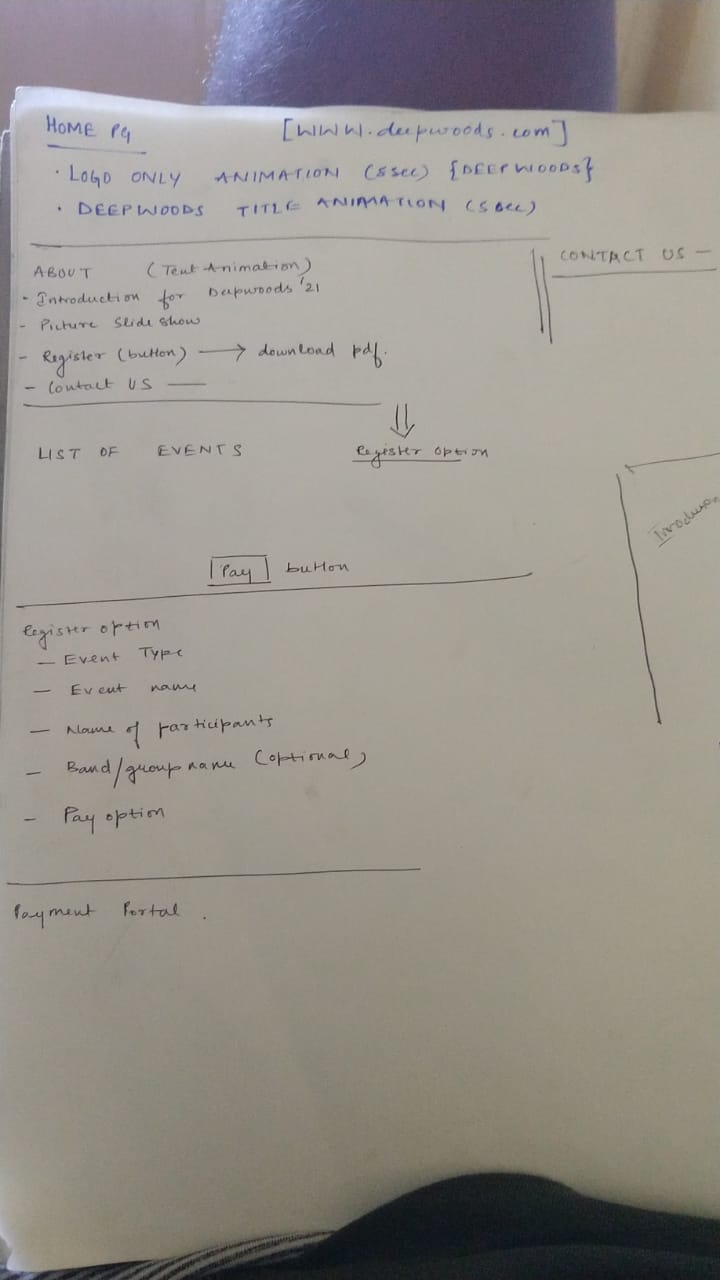 HOME PG [WWW.deepwoods.com]
· LOGO ONLY ANIMATION (5 sec) {DEEPWOODS}
· DEEPWOODS TITLE ANIMATION (5 sec)
CONTACT US —
ABOUT (Text Animation)
- Introduction for Deepwoods '21
- Picture Slide show
- Register (button) → download pdf.
- Contact US —
LIST OF EVENTS Register option
Pay button
Register option
- Event Type
- Event name
- Name of participants
- Band/group name (optional)
- Pay option
Payment Portal.